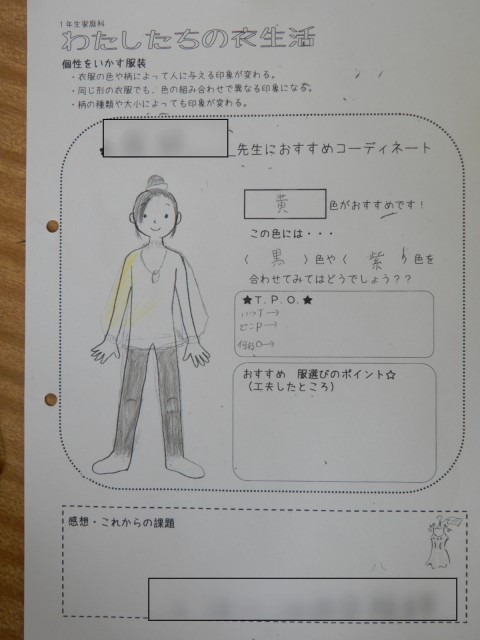 1年生家庭科
わたしたちの衣生活
個性をいかす服装
・衣服の色や柄によって人に与える印象が変わる。
・同じ形の衣服でも、色の組み合わせで異なる印象になる。
・柄の種類や大小によっても印象が変わる。
先生におすすめコーディネート
黄 色がおすすめです！
この色には・・・
（ 黒 ）色や（ 紫 ）色を
合わせてみてはどうでしょう？？
★T.P.O.★
いつT→
どこP→
何をO→
おすすめ 服選びのポイント☆
（工夫したところ）
感想・これからの課題